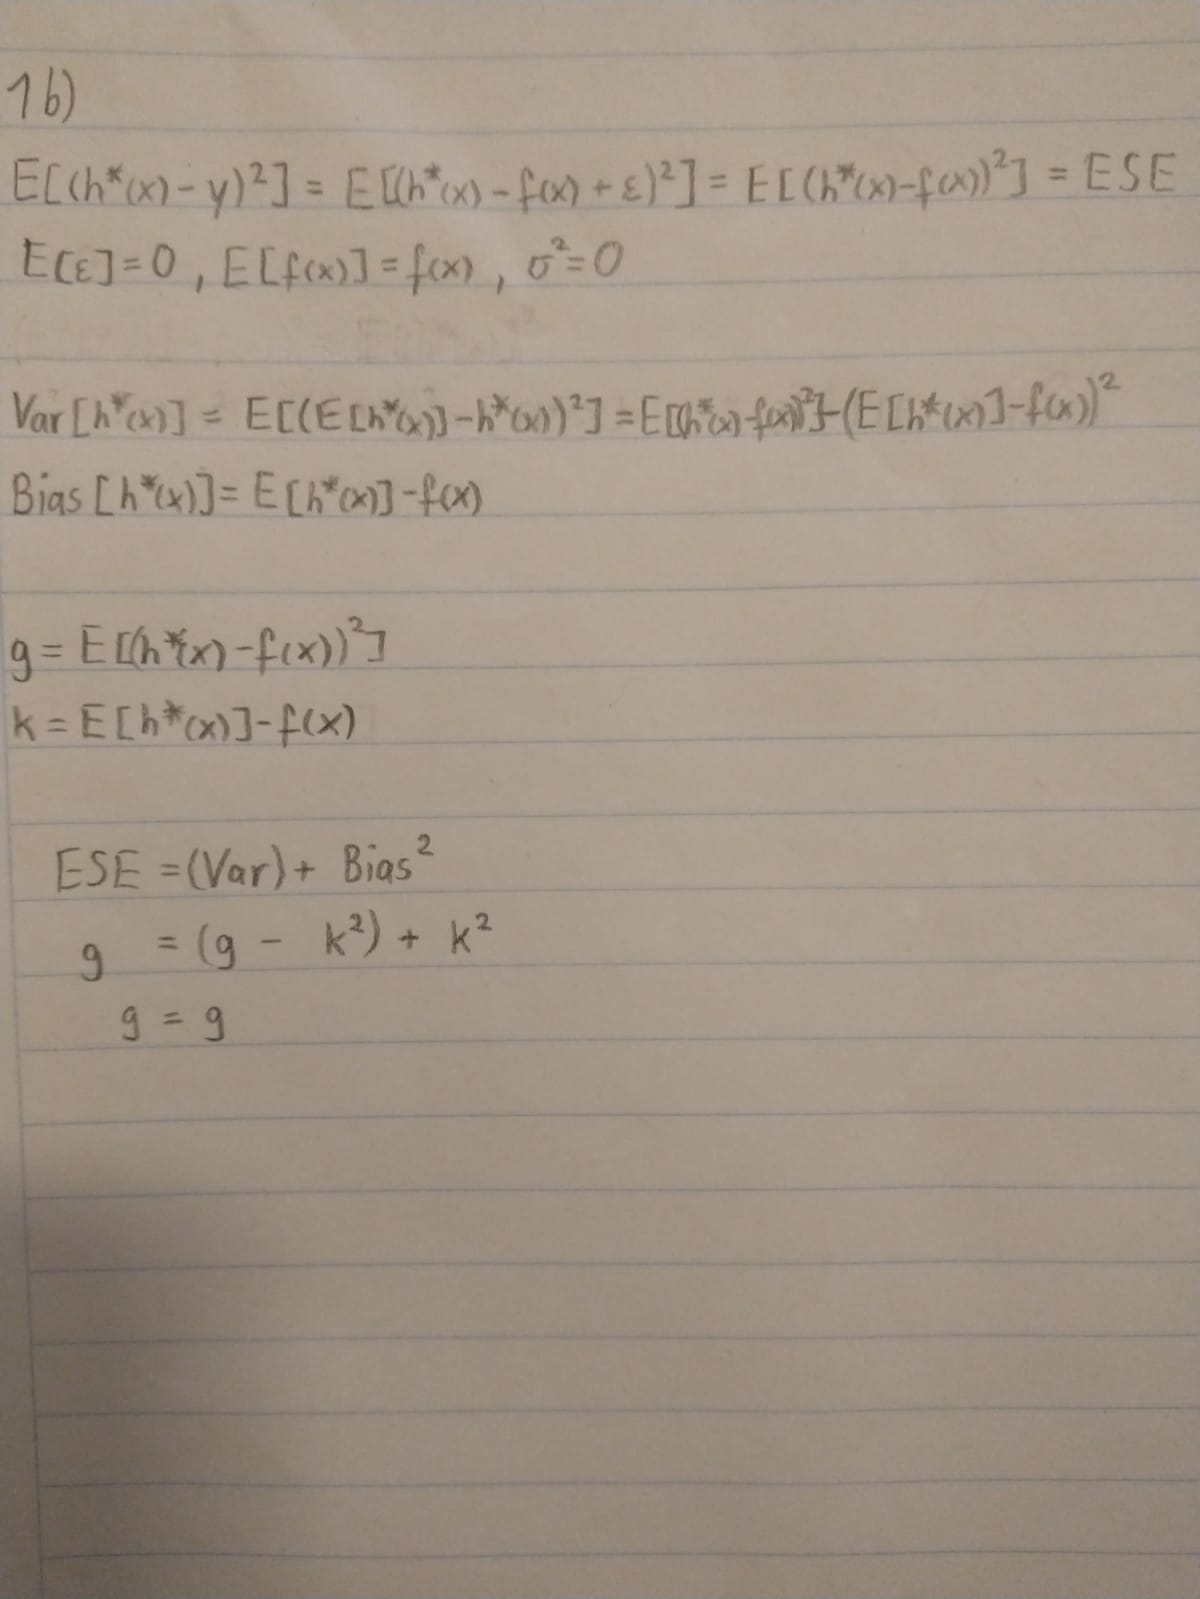 1b)
E[(h*(x) - y)²] = E[(h*(x) - f(x) + ε)²] = E[(h*(x)-f(x))²] = ESE
E[ε]=0, E[f(x)] = f(x), σ²=0
Var[h*(x)] = E[(E[h*(x)]-h*(x))²] = E[(h*(x)-f(x))²]-(E[h*(x)]-f(x))²
Bias[h*(x)] = E[h*(x)] - f(x)
g = E[(h*(x) - f(x))²]
k = E[h*(x)] - f(x)
ESE = (Var) + Bias²
g = (g - k²) + k²
g = g